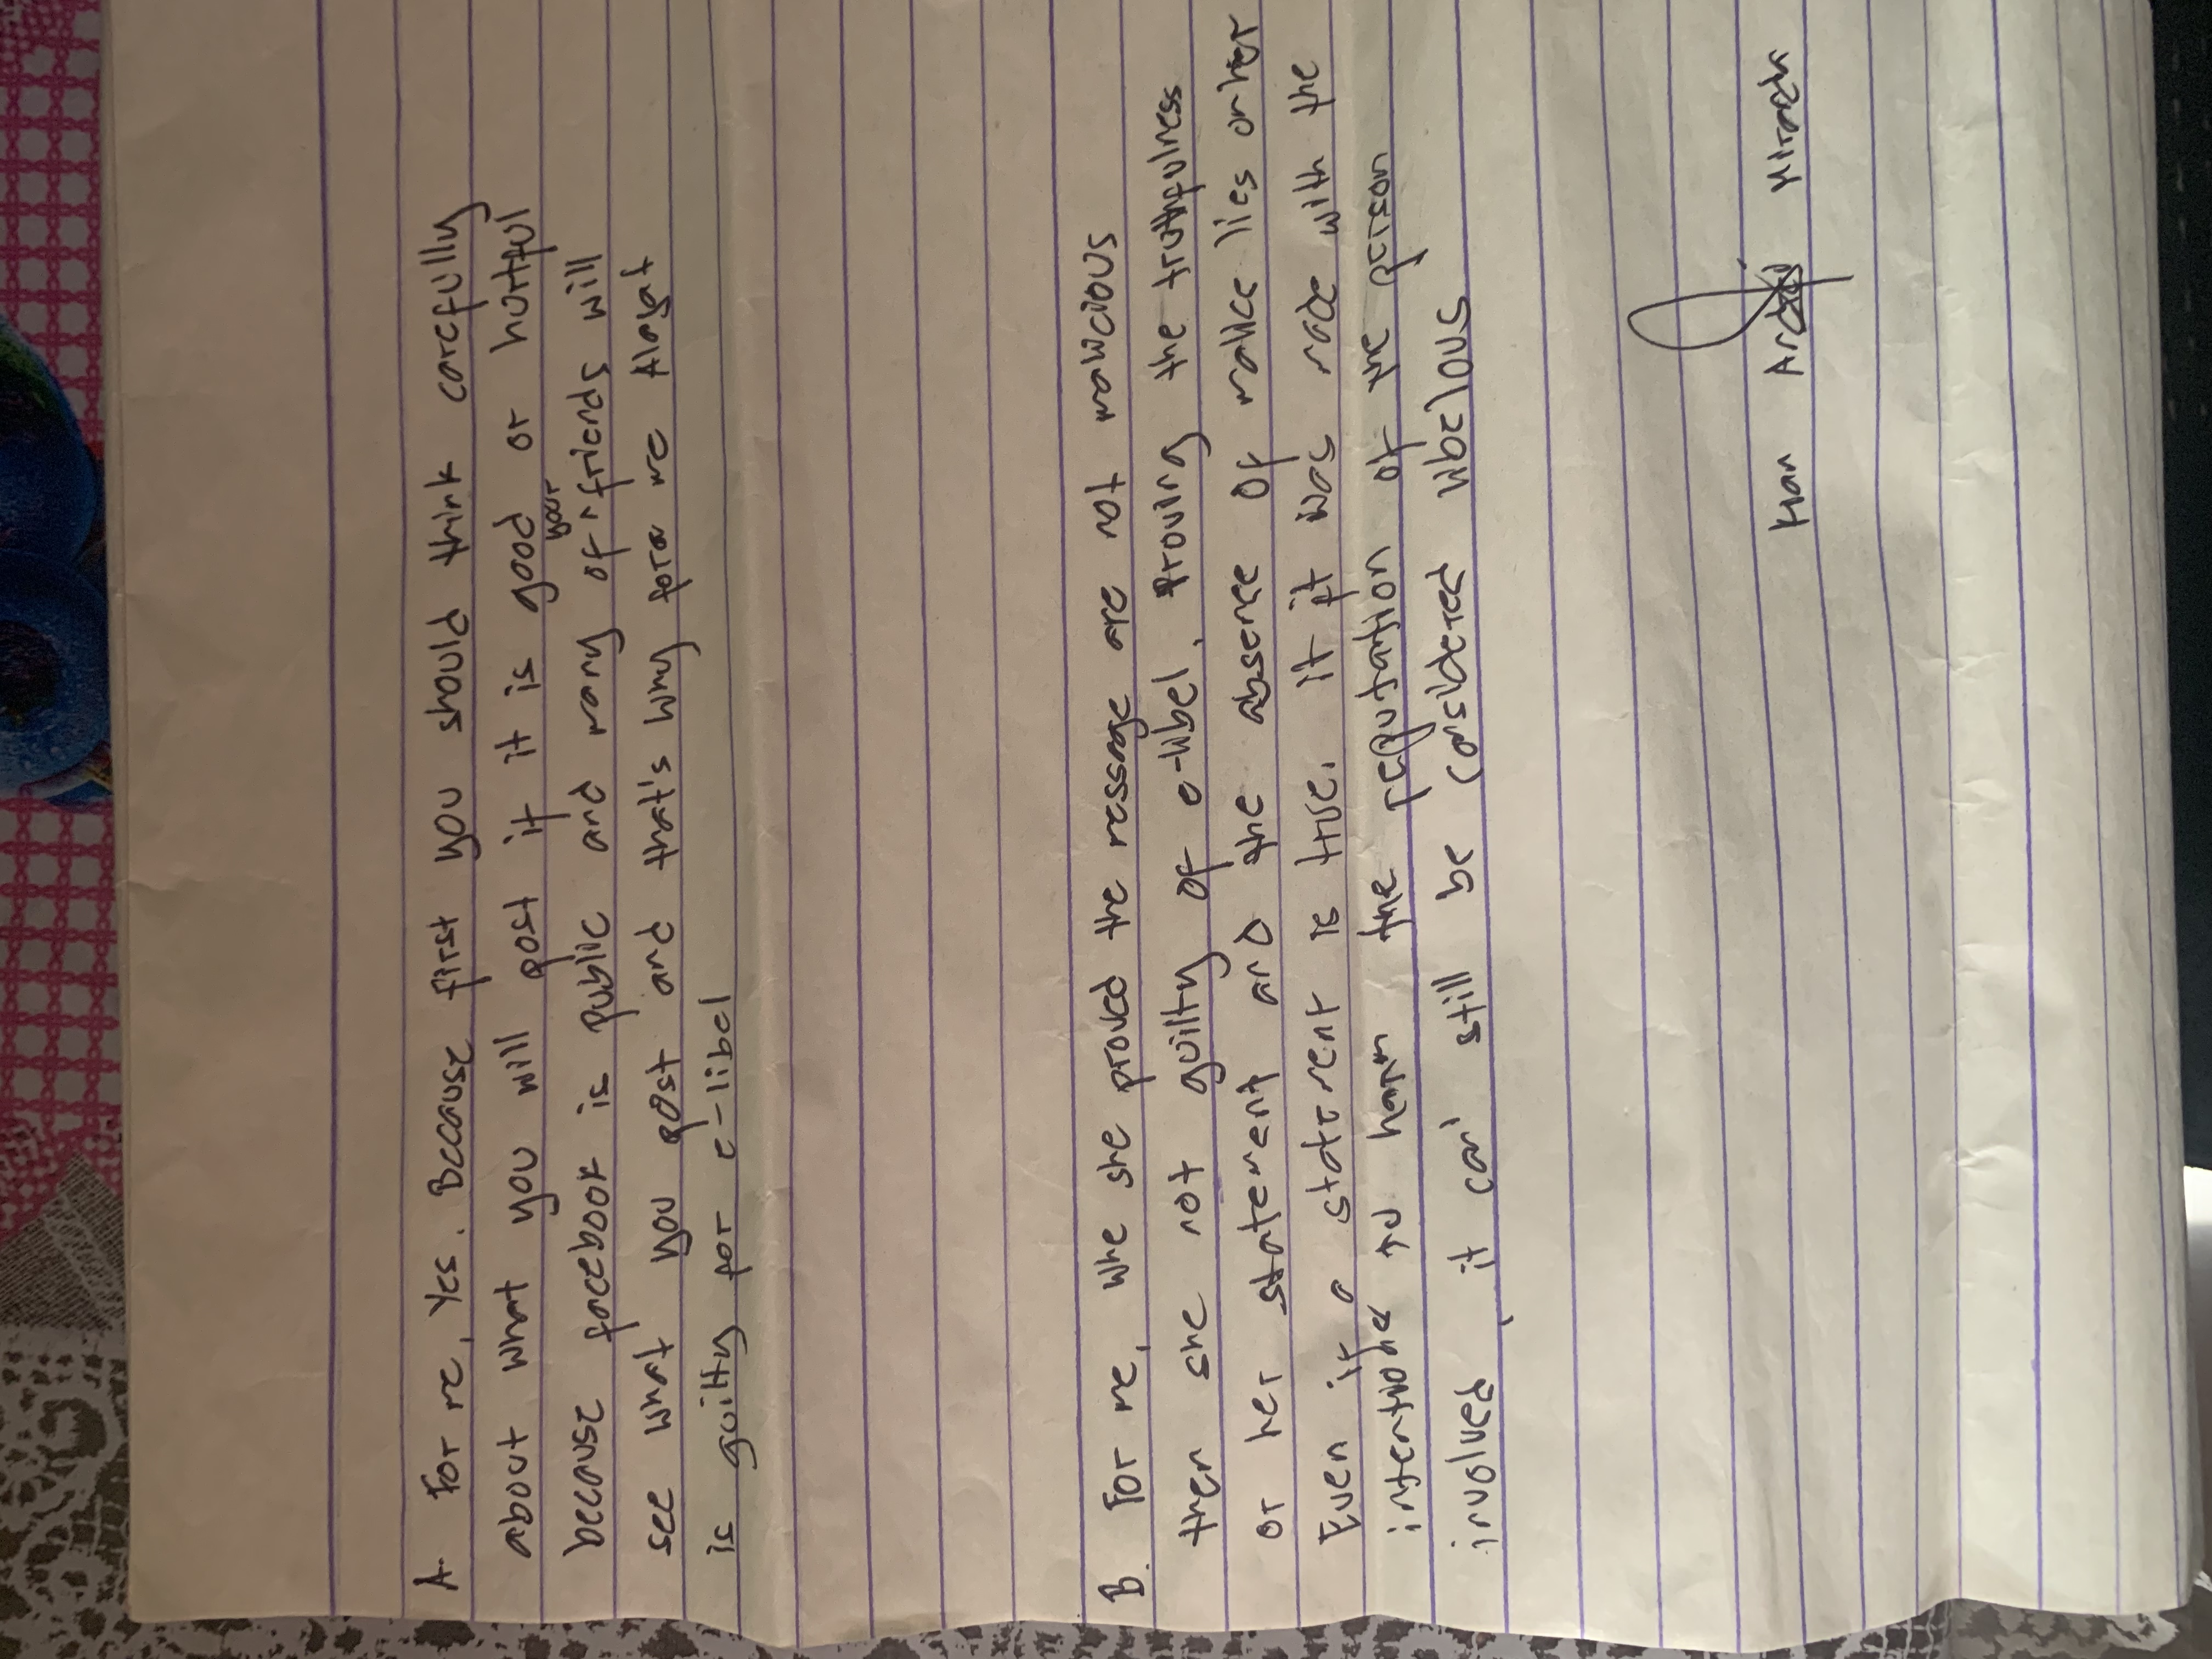 A. For me, Yes. Because first you should think carefully
about what you will post if it is good or hurtful
because facebook is public and many of your friends will
see what you post and that's why for me Alagat
is guilty for e-libel
B. For me, Whe she proved the message are not malicious
then she not guilty of e-libel. Proving the truthfulness
or her statement and the absence of malice lies on her
Even if a statement is true. if it was made with the
to harm the reputation of the person
involved, it can' still be considered libelous
Kian Miranda